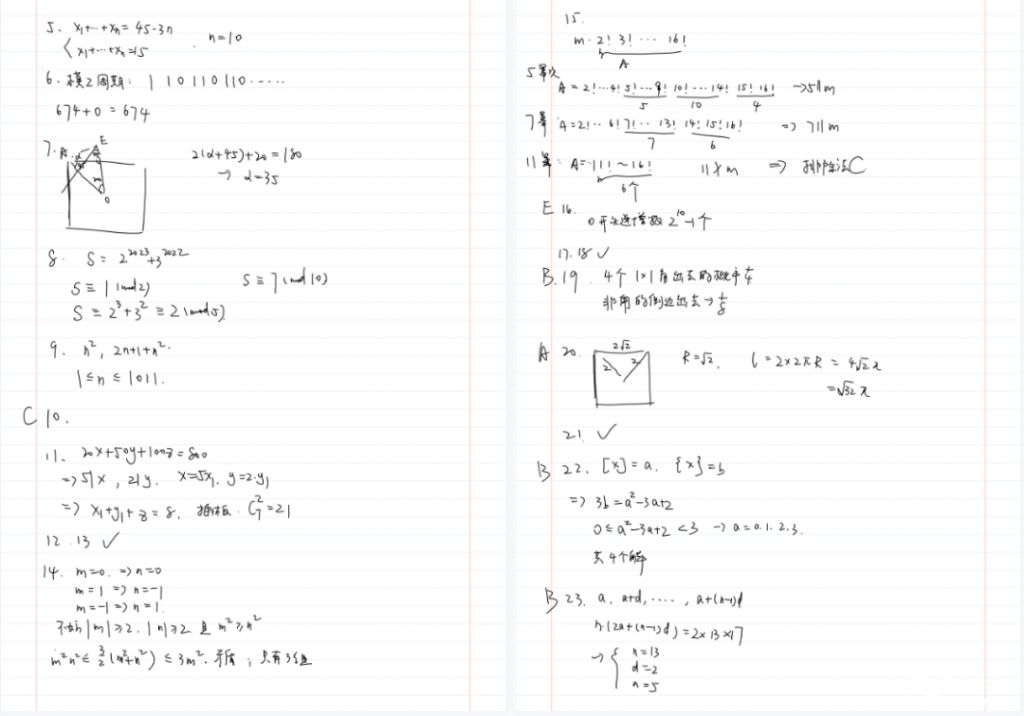 5. x₁+…+xₙ = 45-3n
x₁+…+xₙ=15
n=10
6. 模2周期: 1 1 0 1 1 0 1 1 0 ……
674+0 = 674
7.
A
E
α
20
O
2(α+45)+20=180
→ α=35
8. S = 2²⁰²³+3²⁰²²
S≡1 (mod 2)
S ≡ 2³+3² ≡ 2 (mod 5)
S≡7 (mod 10)
9. n², 2n+1+n².
1≤n≤1011.
C 10.
11. 20x+50y+100z=800
=> 5|x, 2|y. x=5x₁, y=2·y₁
=> x₁+y₁+z=8. 插板. C₇²=21
12. 13 ✓
14. m=0. => n=0
m=1 => n=-1
m=-1 => n=1.
不妨 |m|≥2. |n|≥2 且 m²≥n²
m²n² ≤ 3/2(m²+n²) ≤ 3m². 矛盾; 只有3组
15.
m·2! 3! … 16!
A
5幂次
A=2!…4! 5!…9! 10!…14! 15! 16! →5||m
5 10 4
7幂 A=2!…6! 7!…13! 14! 15! 16! => 7||m
7 6
11幂: A=11!~16! 11∤m => 排除法C
6个
E 16.
0开头递增数 2¹⁰-1个
17.18 ✓
B. 19. 4个1×1角出去的概率¼
非角的侧边出去→⅛
A 20.
2√2
2 2
R=√2. l=2×2πR = 4√2π
=√32π
21. ✓
B 22. [x]=a. {x}=b
=> 3b=a²-3a+2
0≤a²-3a+2<3 → a=0.1.2.3.
共4个解
B 23. a, a+d, …., a+(n-1)d
n(2a+(n-1)d)=2×13×17
→ { n=13
d=2
a=5